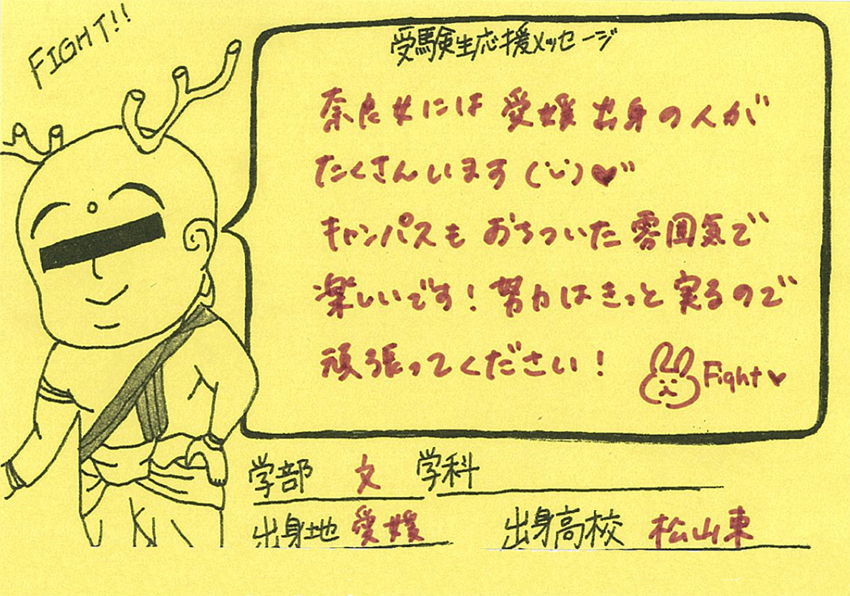 FIGHT!!
受験生応援メッセージ
奈良女には愛媛出身の人が
たくさんいます(´ω`)♥
キャンパスもおちついた雰囲気で
楽しいです!努力はきっと実るので
頑張ってください!
Fight♥
学部 文 学科
出身地 愛媛 出身高校 松山東